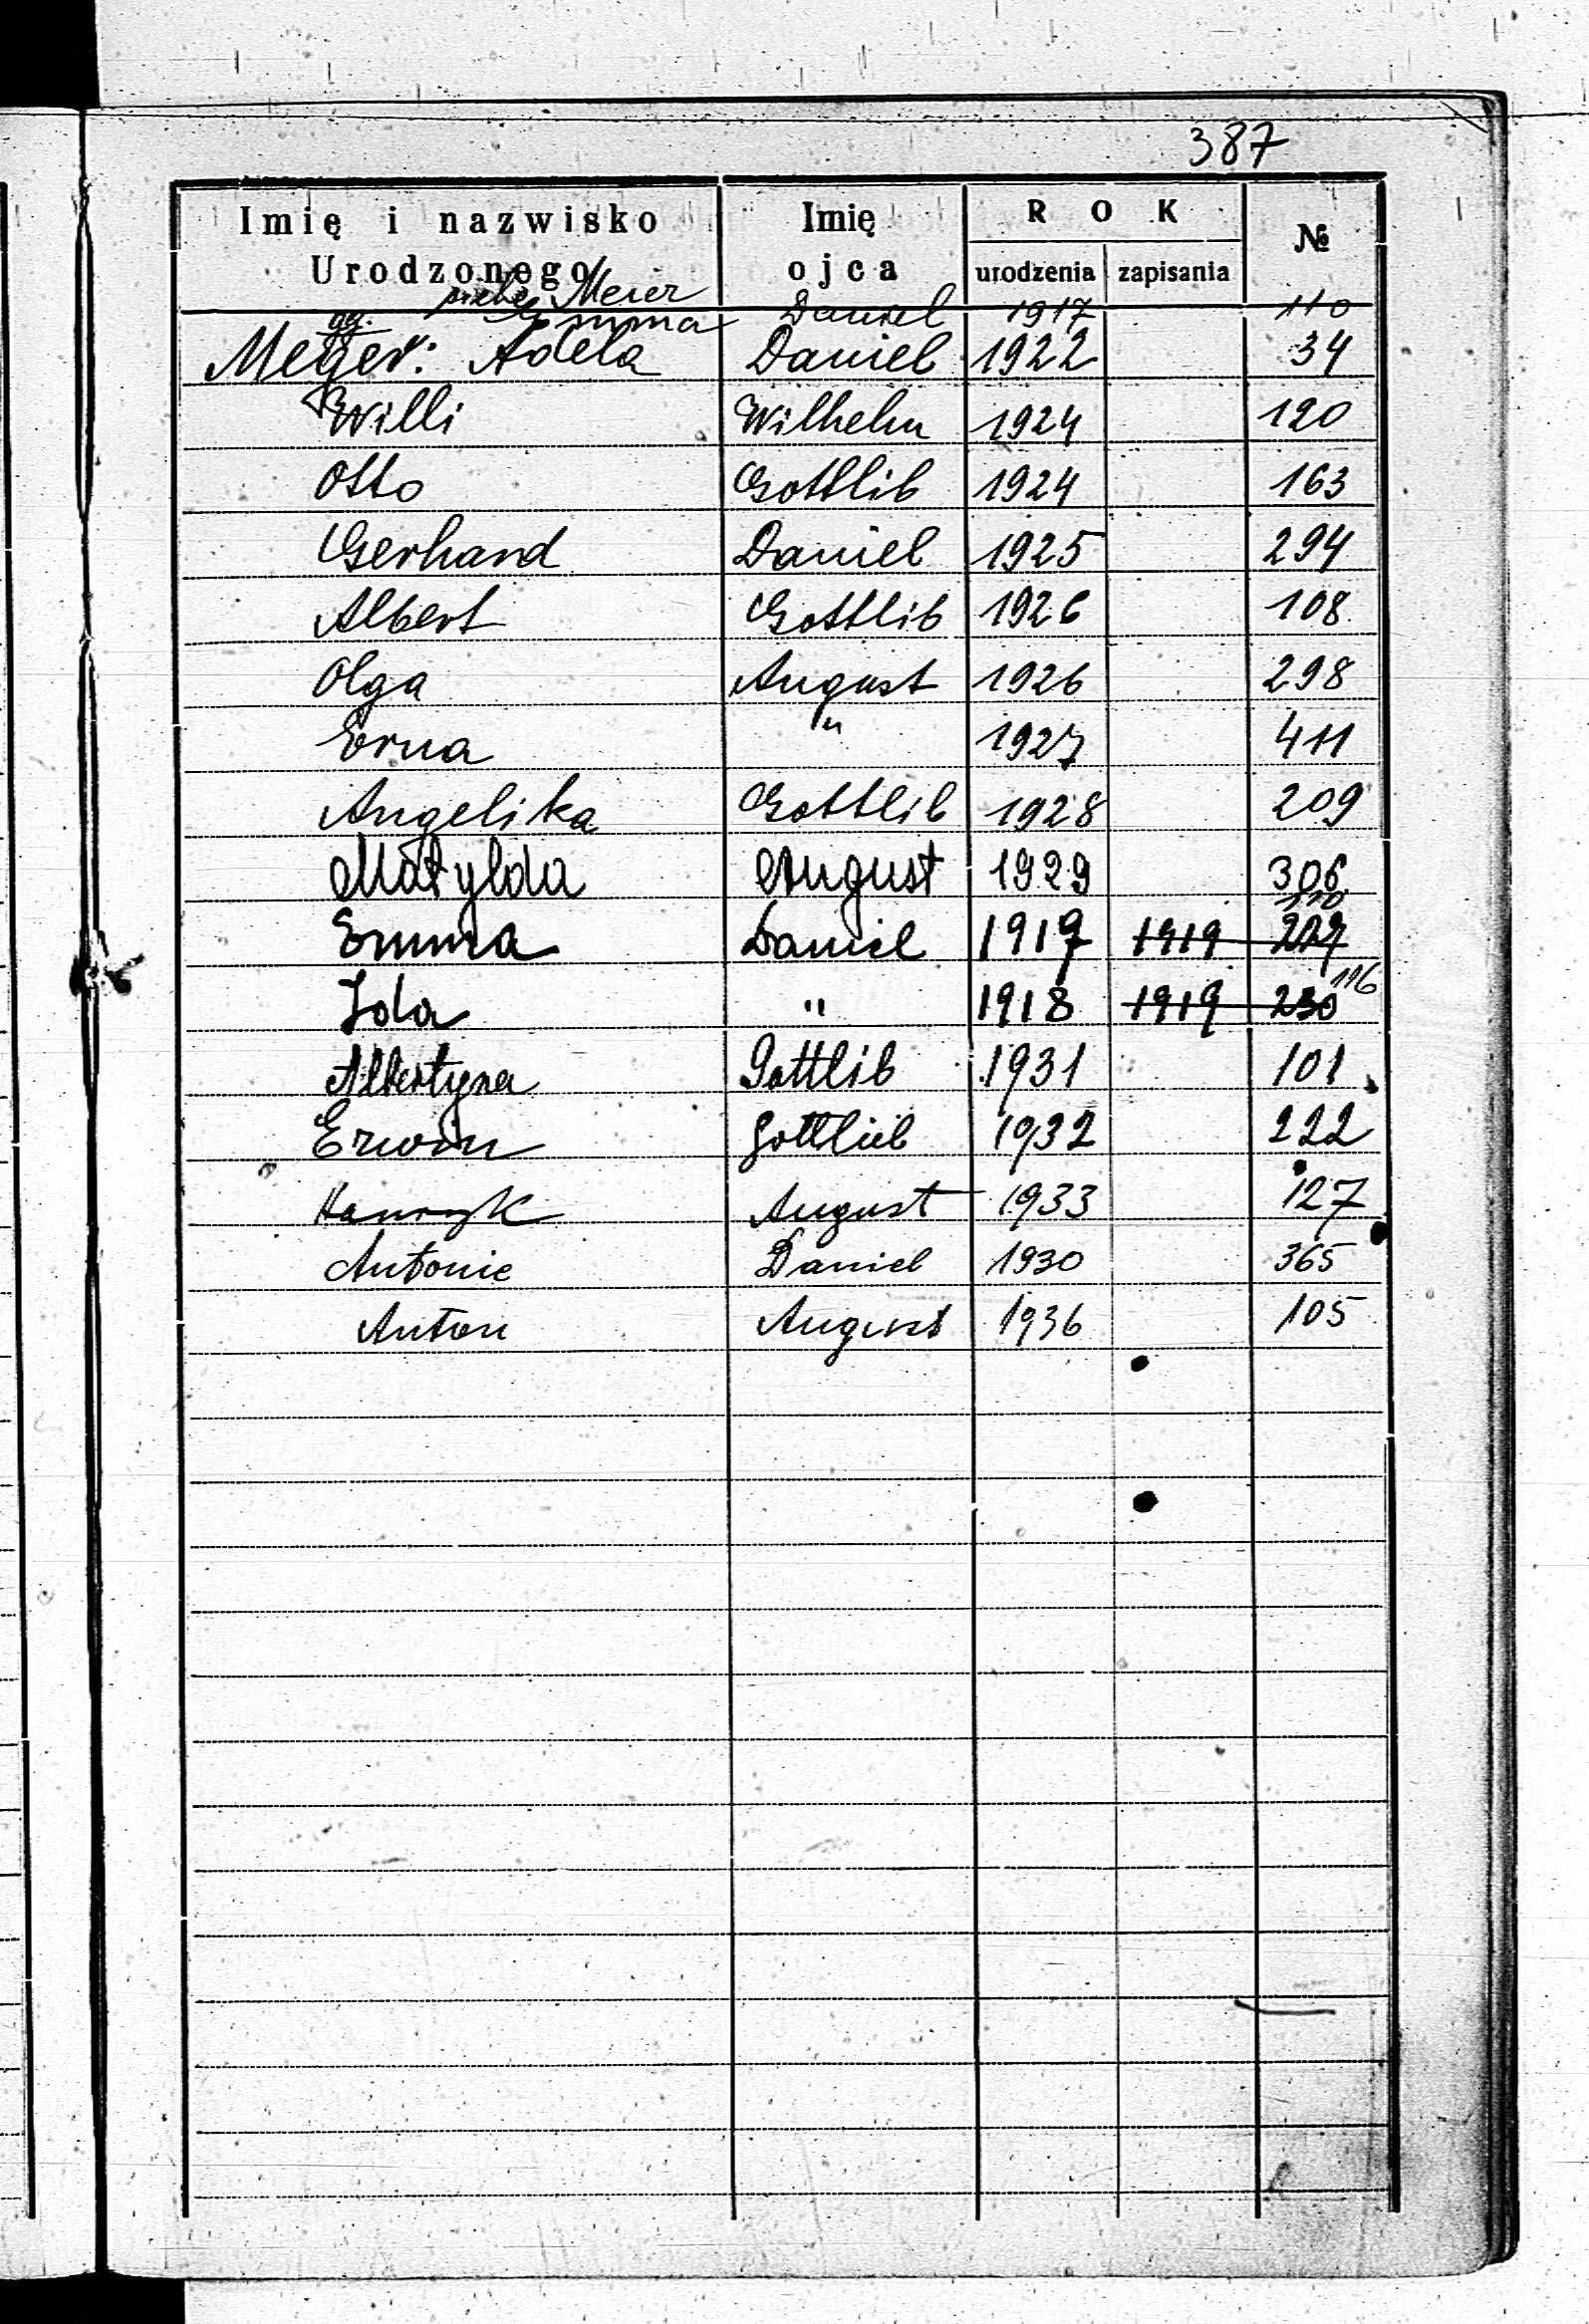 387
Imię i nazwisko Urodzonego
Imię ojca
ROK
urodzenia zapisania
№
siehe Meier
Emma Daniel 1917 110
Meyer: Adela Daniel 1922 34
Willi Wilhelm 1924 120
Otto Gottlib 1924 163
Gerhard Daniel 1925 294
Albert Gottlib 1926 108
Olga August 1926 298
Erna " 1927 411
Angelika Gottlib 1928 209
Matylda August 1929 306
110
Emma Daniel 1917 1919
116
Ida " 1918 1919 230
Albertyna Gottlib 1931 101
Erwin Gottlieb 1932 222
Henryk August 1933 127
Antonie Daniel 1930 365
Anton August 1936 105